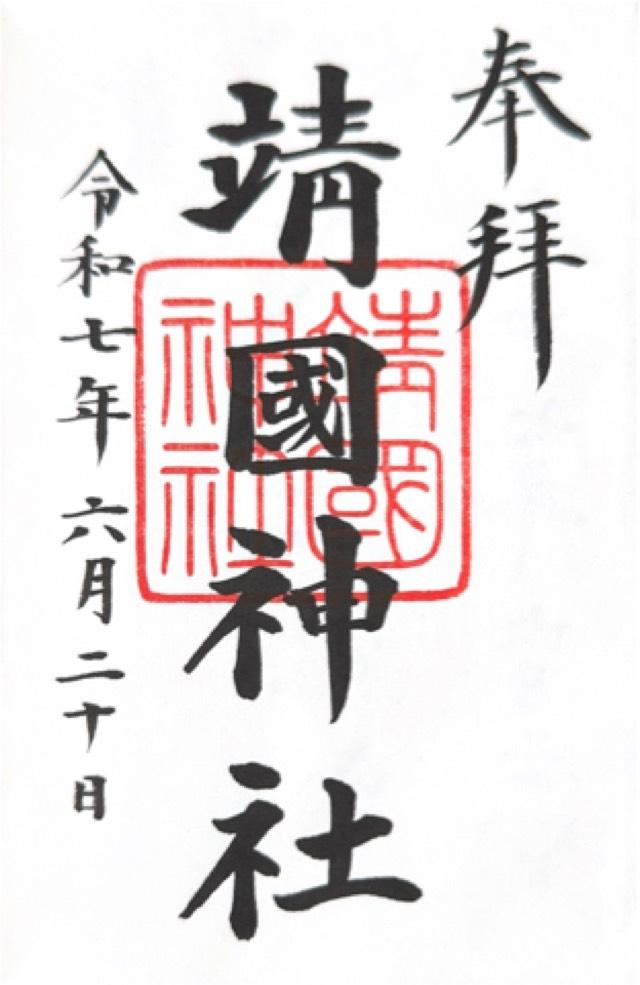 奉拜
靖國神社
靖國
神社
令和七年六月二十日